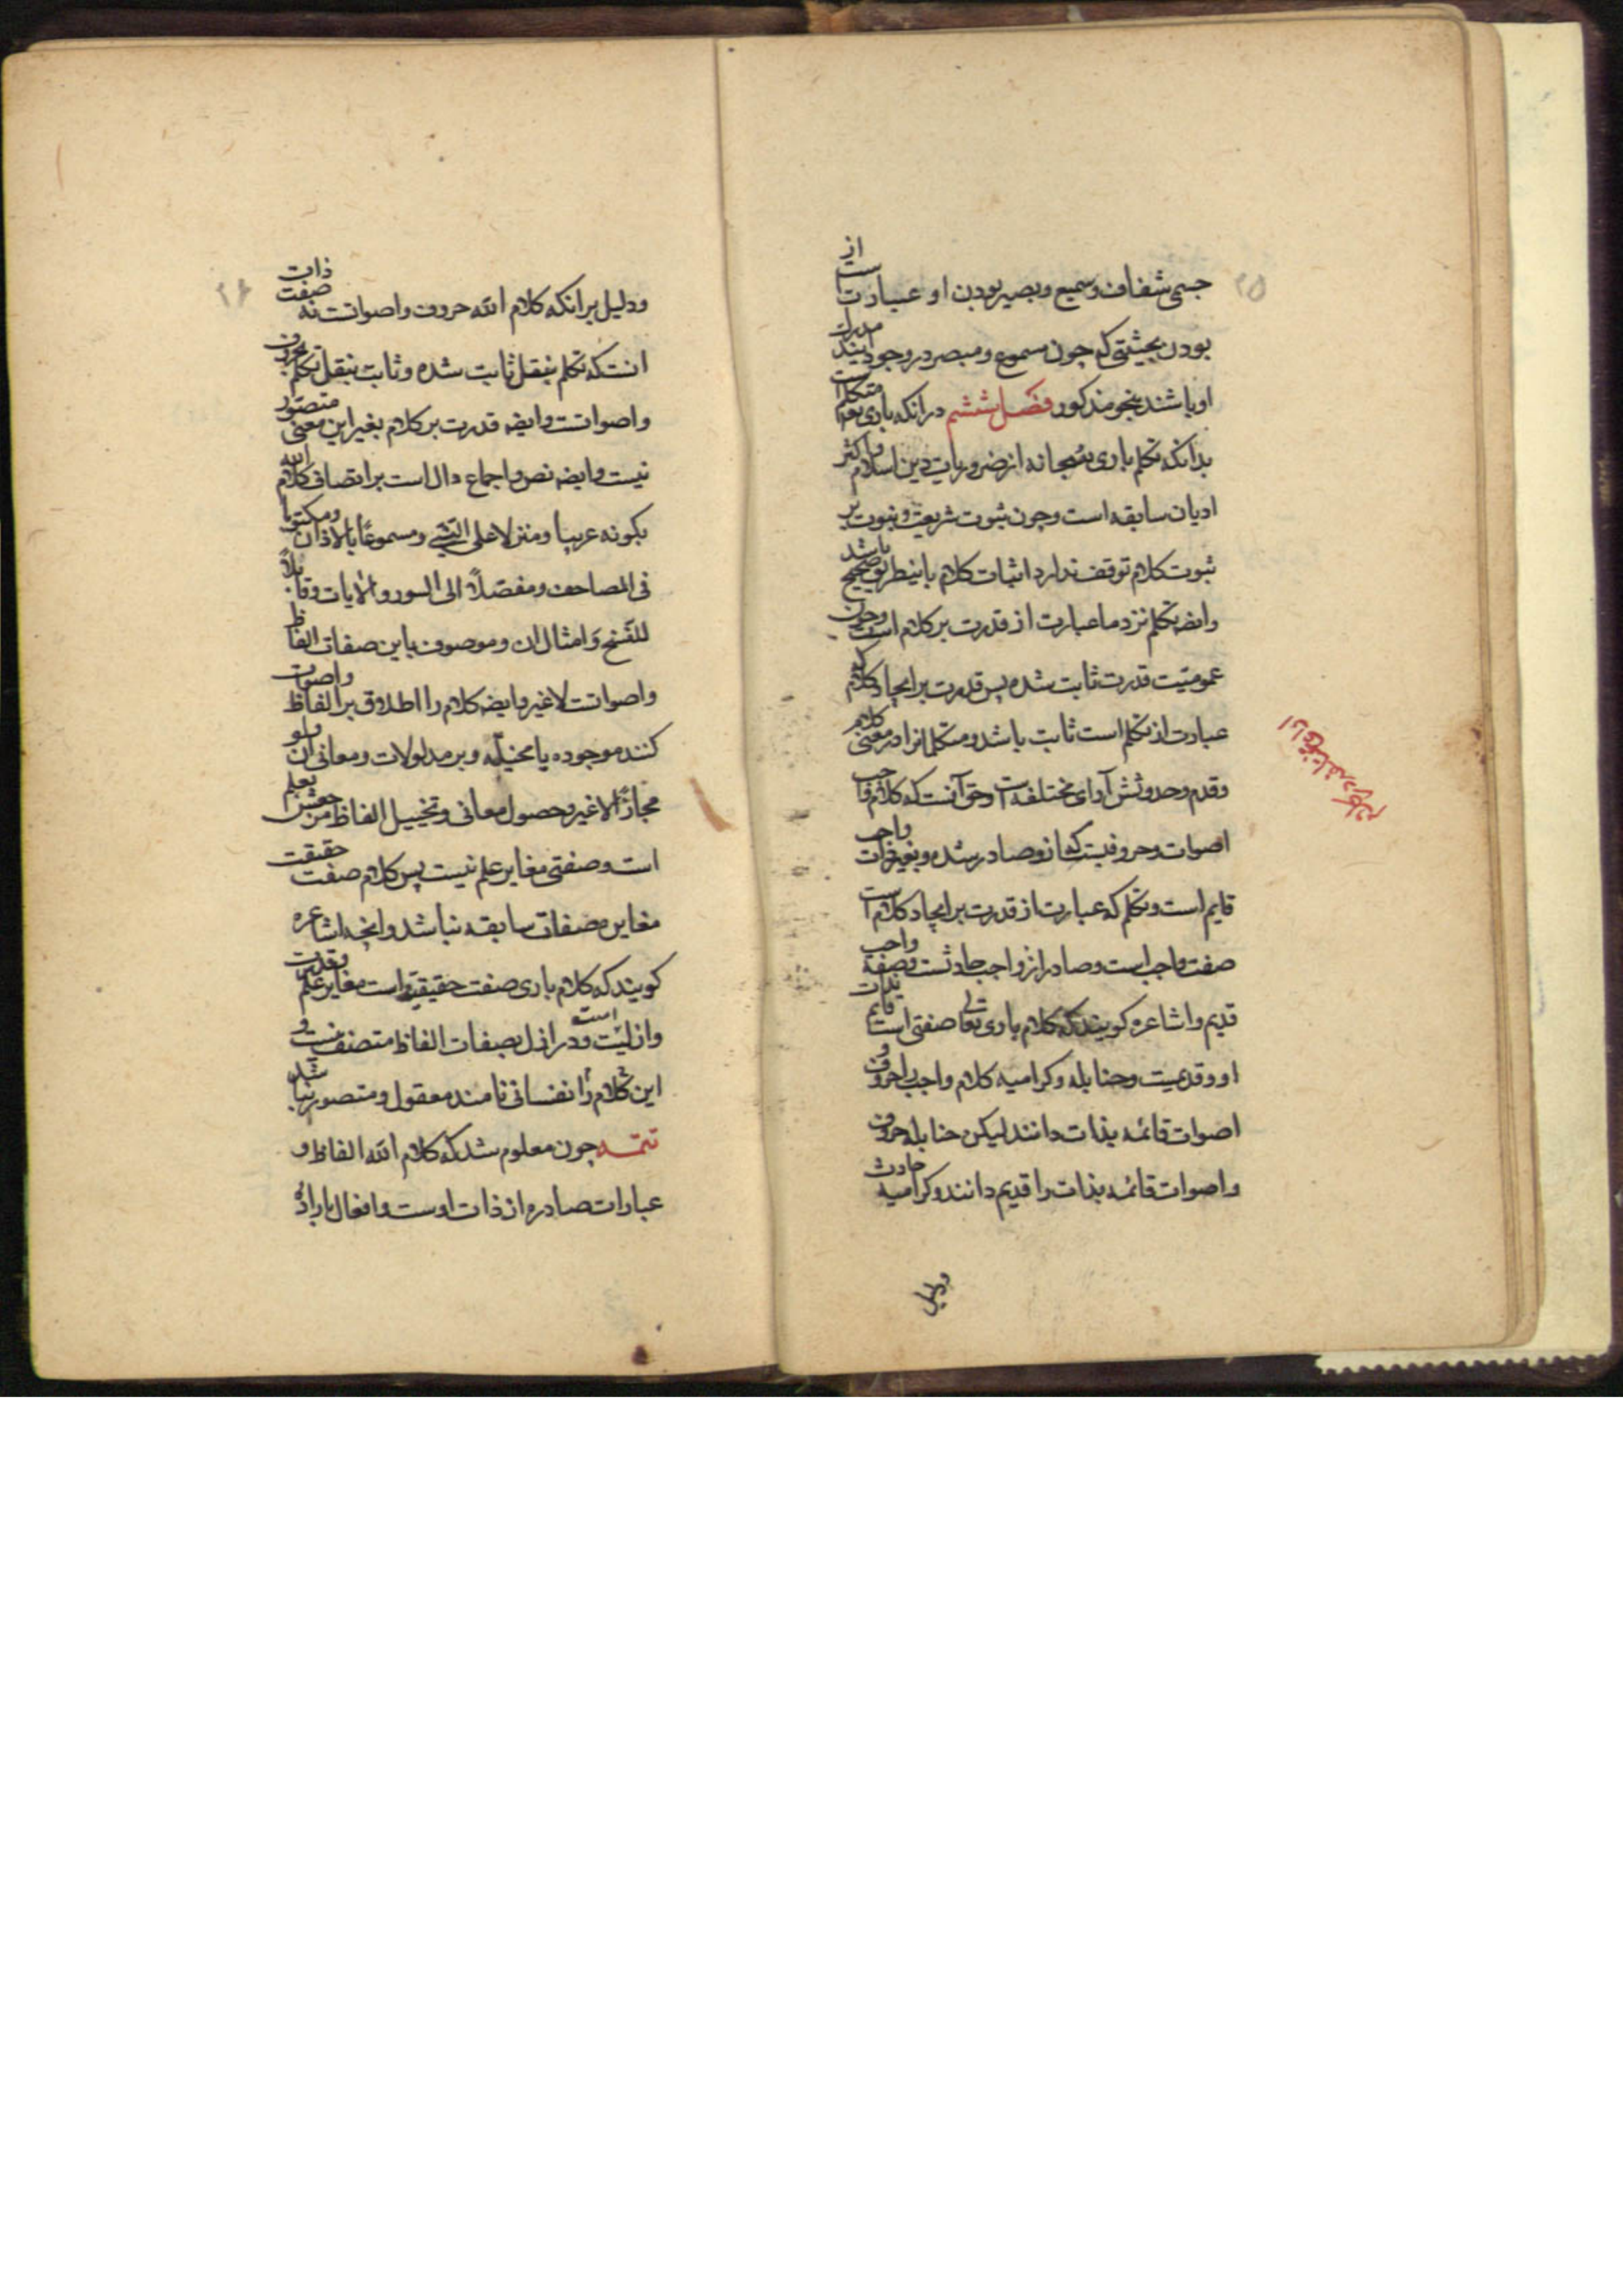 ۲۵
جسمی شفاف و سمیع و بصیر بودن او عبارتست از
بودن بحیثیتی که چون مسموع و مبصر در وجود ایند مدرک
او باشند بنحو مذکور فصل ششم در انکه باری تعه متکلم است
بدانکه تکلم باری سبحانه از ضروریات دین اسلام و اکثر
ادیان سابقه است و چون ثبوت شریعت و نبوت بر
ثبوت کلام توقف ندارد اثبات کلام باینطریق صحیح باشد
وایضه تکلم نزد ما عبارت از قدرت بر کلام است و چون
عمومیت قدرت ثابت شده پس قدرت بر ایجاد کلام که
عبارت از تکلم است ثابت باشد و متکلمانرا در معنی کلام
وقدم و حدوثش آرای مختلفه است و حق آنست که کلام واجب
اصوات و حروفیست که ازو صادر شده و بغیر ذات واجب
قایم است و تکلم که عبارت از قدرت بر ایجاد کلام است
صفت واجب است و صادر از واجب حادثست و صفة واجب
قدیم و اشاعره کویند که کلام باری تعالی صفتی است قایم بذات
او و قدیمیت و حنابله و کرامیه کلام واجب را حروف و
اصوات قائمه بذات دانند لیکن حنابله حروف
واصوات قائمه بذات را قدیم دانند و کرامیه حادث
ودلیل
۲۶
ودلیل بر انکه کلام الله حروف و اصواتست نه صفت ذات
انست که تکلم بنقل ثابت شده و ثابت بنقل تکلم بحروف
واصواتست وایضه قدرت بر کلام بغیر این معنی متصور
نیست وایضه نص و اجماع دال است بر اتصاف کلام الله
بکونه عربیا و منزلا علی النبی و مسموعًا بالاذان و مکتوبا
فی المصاحف و مفصلاً الی السور و الایات و قابلاً
للنسخ و امثال ان و موصوف باین صفات الفاظ
واصواتست لاغیر وایضه کلام را اطلاق بر الفاظ و اصوات
کنند موجوده یا مخیله و بر مدلولات و معانی ان ولو
مجازًا لاغیر و حصول معانی و تخییل الفاظ من بعلم
است و صفتی مغایر علم نیست پس کلام صفت حقیقت
مغایر صفات سابقه نباشد و انچه اشاعره
کویند که کلام باری صفت حقیقیه است مغایر علم و قدرت
وازلیست و در ازل بصفات الفاظ متصف نیست و
این کلام را نفسانی نامند معقول و متصور نباشد
تتمه چون معلوم شد که کلام الله الفاظ و
عبارات صادره از ذات اوست و افعال باراده